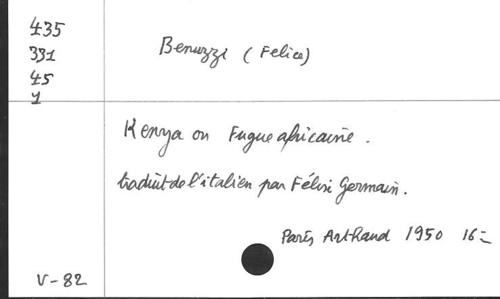 435
331
45
1
Benuzzi (Felice)
Kenya ou Fugue africaine.
traduit de l'italien par Félix Germain.
Paris Arthaud 1950 16=
V-82